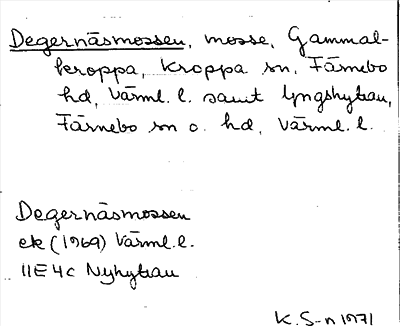 Degernäsmossen, mosse, Gammal-
kroppa, Kroppa sn, Färnebo
hd, Värml. l. samt Lyngshyttan,
Färnebo sn o. hd, Värml. l.
Degernäsmossen
ek (1969) Värml. l.
11E4c Nyhyttan
K. S-n 1971